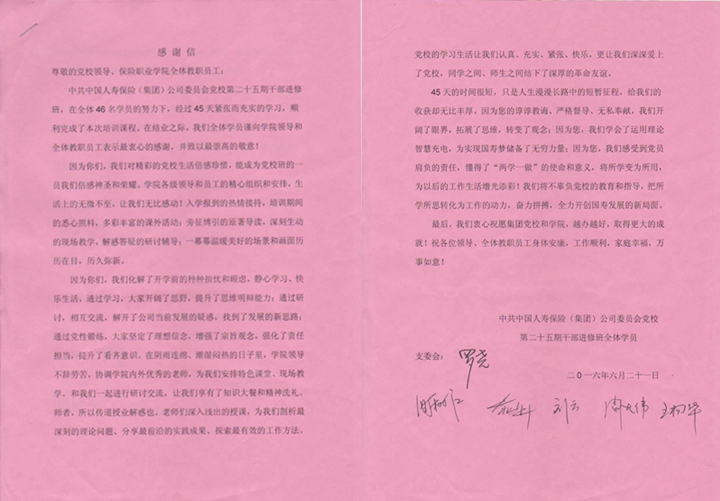 感 谢 信
尊敬的党校领导、保险职业学院全体教职员工：
中共中国人寿保险（集团）公司委员会党校第二十五期干部进修
班，在全体46名学员的努力下，经过45天紧张而充实的学习，顺
利完成了本次培训课程。在结业之际，我们全体学员谨向学院领导和
全体教职员工表示最衷心的感谢，并致以最崇高的敬意！
因为你们，我们对精彩的党校生活倍感珍惜，能成为党校班的一
员我们倍感神圣和荣耀。学院各级领导和员工的精心组织和安排，生
活上的无微不至，让我们无比感动！入学报到的热情接待，培训期间
的悉心照料，多彩丰富的课外活动；旁征博引的原著导读，深刻生动
的现场教学，解惑答疑的研讨辅导；一幕幕温暖美好的场景和画面历
历在目，历久弥新。
因为你们，我们化解了开学前的种种担忧和顾虑，静心学习、快
乐生活，通过学习，大家开阔了思野，提升了思维明辩能力；通过研
讨，相互交流，解开了公司当前发展的疑惑，找到了发展的新思路；
通过党性锻炼，大家坚定了理想信念，增强了宗旨观念，强化了责任
担当，提升了看齐意识。在阴雨连绵、潮湿闷热的日子里，学院领导
不辞劳苦，协调学院内外优秀的老师，为我们安排特色课堂、现场教
学，和我们一起进行研讨交流，让我们享有了知识大餐和精神洗礼。
师者，所以传道授业解惑也，老师们深入浅出的授课，为我们剖析最
深刻的理论问题、分享最前沿的实践成果、探索最有效的工作方法。
党校的学习生活让我们认真、充实、紧张、快乐，更让我们深深爱上
了党校，同学之间、师生之间结下了深厚的革命友谊。
45天的时间很短，只是人生漫漫长路中的短暂征程，给我们的
收获却无比丰厚。因为您的谆谆教诲、严格督导、无私奉献，我们开
阔了眼界，拓展了思维，转变了观念；因为您，我们学会了运用理论
智慧充电，为实现国寿梦储备了无穷力量；因为您，我们感受到党员
肩负的责任，懂得了“两学一做”的使命和意义，将所学变为所用，
为以后的工作生活增光添彩！我们将不辜负党校的教育和指导，把所
学所思转化为工作的动力，奋力拼搏，全力开创国寿发展的新局面。
最后，我们衷心祝愿集团党校和学院，越办越好，取得更大的成
就！祝各位领导、全体教职员工身体安康，工作顺利，家庭幸福，万
事如意！
中共中国人寿保险（集团）公司委员会党校
第二十五期干部进修班全体学员
支委会：
二〇一六年六月二十一日
刘云